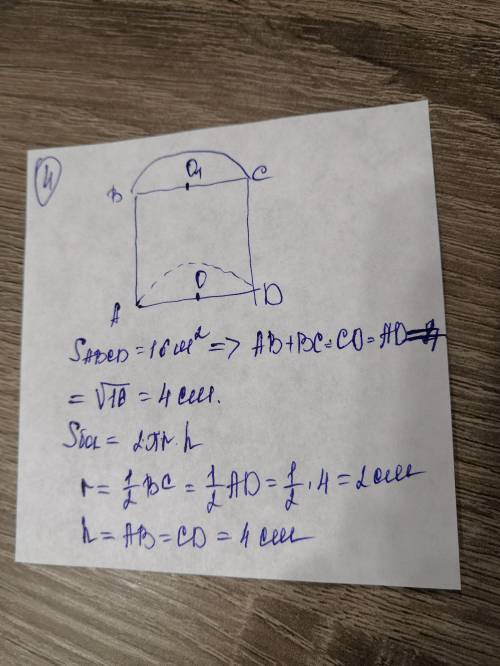 4
O₁
B C
O
A D
S_ABCD = 16 см² => AB+BC=CD=AD
= √16 = 4 см.
Sбп = 2πr·h
r = 1/2 BC = 1/2 AD = 1/2 · 4 = 2 см
h = AB = CD = 4 см